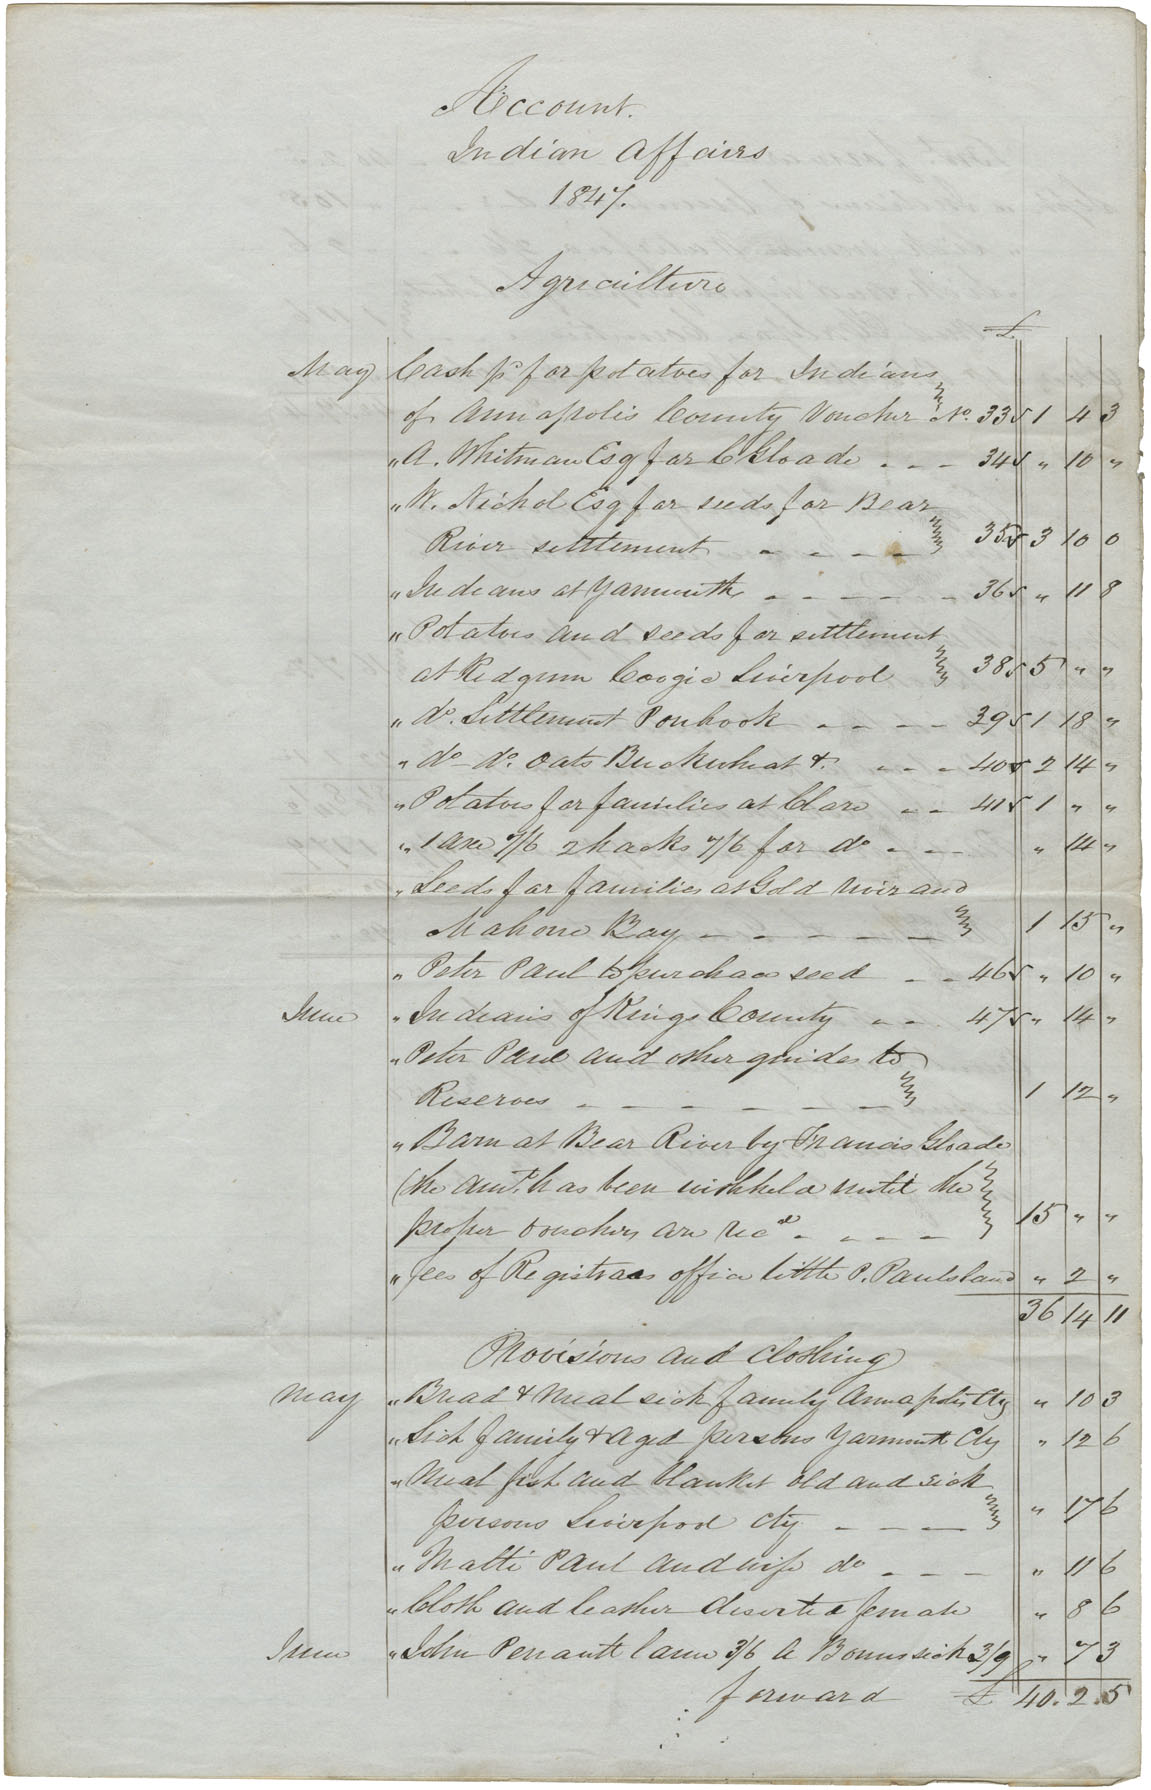 Account.
Indian Affairs
1847.
Agriculture
£
May Cash pd for potatoes for Indians
of Annapolis County Voucher No. 33 1 4 3
" A. Whitman Esq for C Gloade - - - 34 " 10 "
" W. Nichol Esq for seeds for Bear
River settlement - - - - 35 3 10 0
" Indians at Yarmouth - - - - - 36 " 11 8
" Potatoes and seeds for settlement
at Liverpool 38 5 " "
" do. Settlement Ponhook - - - - 39 1 18 "
" do do. Oats Buckwheat &. - - - 40 2 14 "
" Potatoes for families at Clare - - 41 1 " "
" 1 axe 7/6 2 hacks 7/6 for do - - - " 14 "
" Seeds for families at Gold River and
Mahone Bay - - - - - - 1 15 "
" Peter Paul to purchase seed - - 46 " 10 "
June " Indians of Kings County - - 47 " 14 "
" Peter Paul and other guides to
Reserves - - - - - - - 1 12 "
" Barn at Bear River by Francis Gloade
(the amt. has been withheld until the
proper vouchers are recd - - - - 15 " "
" fees of Registrars office little P. Pauls land " 2 "
36 14 11
Provisions and Clothing
May " Bread & Meal sick family Annapolis Cty " 10 3
" Sick family & Aged persons Yarmouth Cty " 12 6
" Meal fish and blanket old and sick
persons Liverpool Cty - - - - " 17 6
" Matti Paul and wife do - - - " 11 6
" Cloth and leather deserted female " 8 6
June " John Penault lame 3/6 A Bonus sick 3/9 " 7 3
forward £ 40. 2. 5